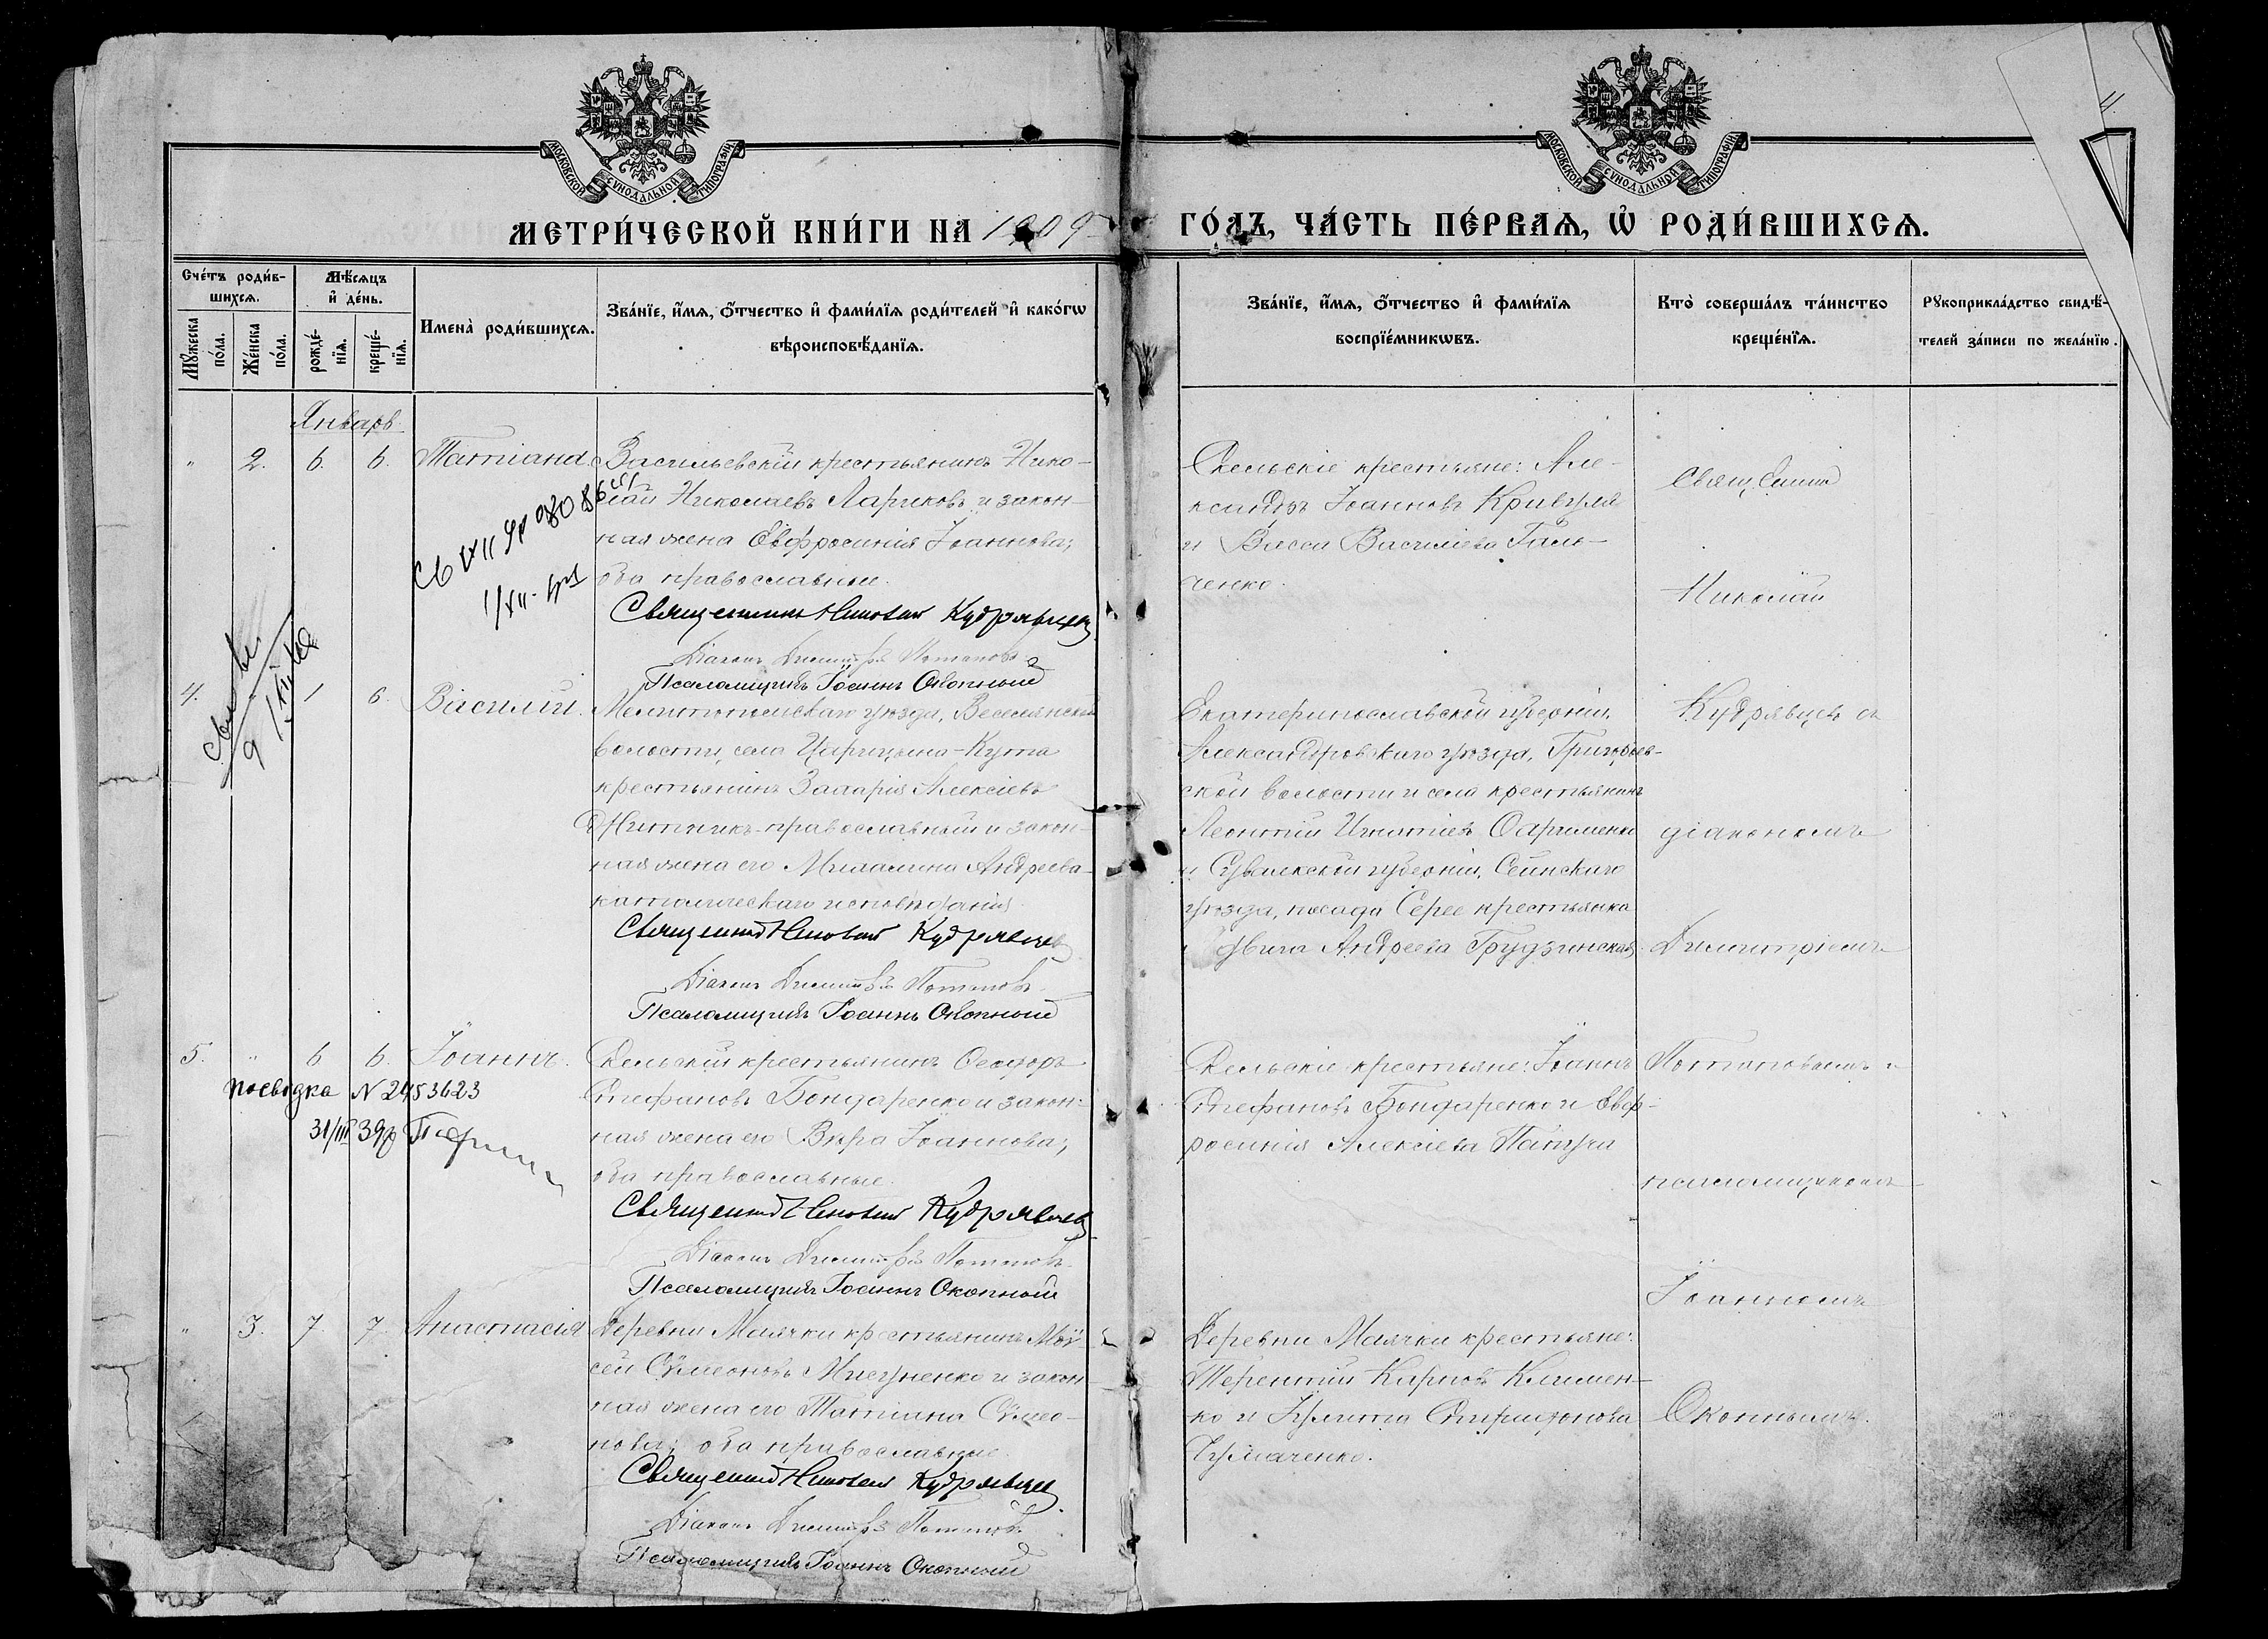 МОСКОВСКОЙ СУНОДАЛЬНОЙ ТИПОГРАФІИ
МОСКОВСКОЙ СУНОДАЛЬНОЙ ТИПОГРАФІИ
МЕТРИ́ЧЕСКОЙ КНИ́ГИ НА 1909
ГО́ДЪ, ЧА́СТЬ ПЕ́РВАѦ, Ѡ҆ РОДИ́ВШИХСѦ.
Сче́тъ роди́в-
шихсѧ.
Мꙋ́жеска по́ла.
Же́нска по́ла.
Мѣ́сѧцъ
и҆ де́нь.
рожде́-
нїѧ.
креще́-
нїѧ.
Имена̀ роди́вшихсѧ.
Зва́нїе, и҆́мѧ, ѻ҆́тчество и҆ фами́лїѧ роди́телей и҆ како́гѡ
вѣроисповѣ́данїѧ.
Зва́нїе, и҆́мѧ, ѻ҆́тчество и҆ фами́лїѧ
воспрїе́мникѡвъ.
Кто̀ соверша́лъ та́инство
креще́нїѧ.
Рꙋкоприкла́дство свидѣ́-
телей за́писи по жела́нїю.
Январь
" 2. 6. 6. Татіана.
Васильевскій крестьянинъ Нико-
лай Николаевъ Лариковъ и закон-
ная жена Евфросинія Іоаннова;
оба православные.
Священникъ Николай Кудрявцевъ
Діаконъ Димитрій Потаповъ
Псаломщикъ Іоаннъ Окопный
Скельскіе крестьяне: Але-
ксандръ Іоанновъ Кривуля
и Васса Василіева Галь-
ченко.
Священник
Николай
4. " 1 6. Василій.
Мелитопольскаго уѣзда, Веселянской
волости, села Царицына-Кута
крестьянинъ Захарія Алексіевъ
Житникъ православный и закон-
ная жена его Михалина Андреева
католическаго исповѣданія.
Священник Николай Кудрявцев
Діаконъ Димитрій Потаповъ
Псаломщикъ Іоаннъ Окопный
Екатеринославской губерніи,
Александровскаго уѣзда, Григорьев-
ской волости и села крестьянинъ
Леонтій Игнатіев
и Сувалкской губерніи, Сейнскаго
уѣзда, посада Серее крестьянка
Андреева Грудзинская
Кудрявцевъ съ
діакономъ
Димитріемъ
5. " 6 6. Іоаннъ.
посвідка N 2453623
31/III 39р
Скельскій крестьянинъ Ѳеодоръ
Стефановъ Бондаренко и закон-
ная жена его Вѣра Іоаннова;
оба православные.
Священник Николай Кудрявцев
Діаконъ Димитрій Потаповъ
Псаломщикъ Іоаннъ Окопный
Скельскіе крестьяне: Іоаннъ
Стефановъ Бондаренко и Евф-
росинія Алексіева
Потаповымъ и
псаломщикомъ
Іоанномъ
" 3. 7. 7. Анастасія
Деревни Маячки крестьянинъ Моѵ-
сей Сѵмеоновъ и закон-
ная жена его Татіана Сѵмео-
нова; оба православные.
Священник Николай Кудрявцев
Діаконъ Димитрій Потаповъ
Псаломщикъ Іоаннъ Окопный
Деревни Маячки крестьяне:
Терентій Карповъ Климен-
ко и Іулита Спиридонова
Чумаченко.
Окопнымъ.